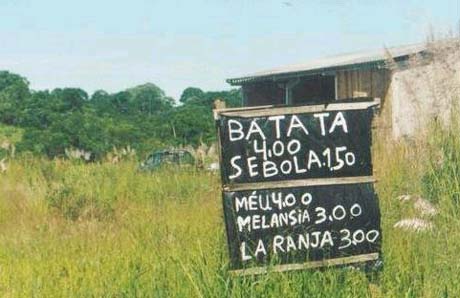 BATATA
4.00
SEBOLA.1.50
MÉU4.00
MELANSIA 3.00
LARANJA 3.00